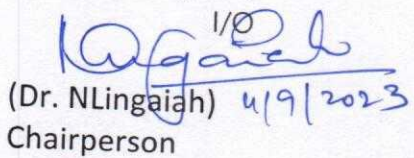 I/O
(Dr. NLingaiah) 4/9/2023
Chairperson